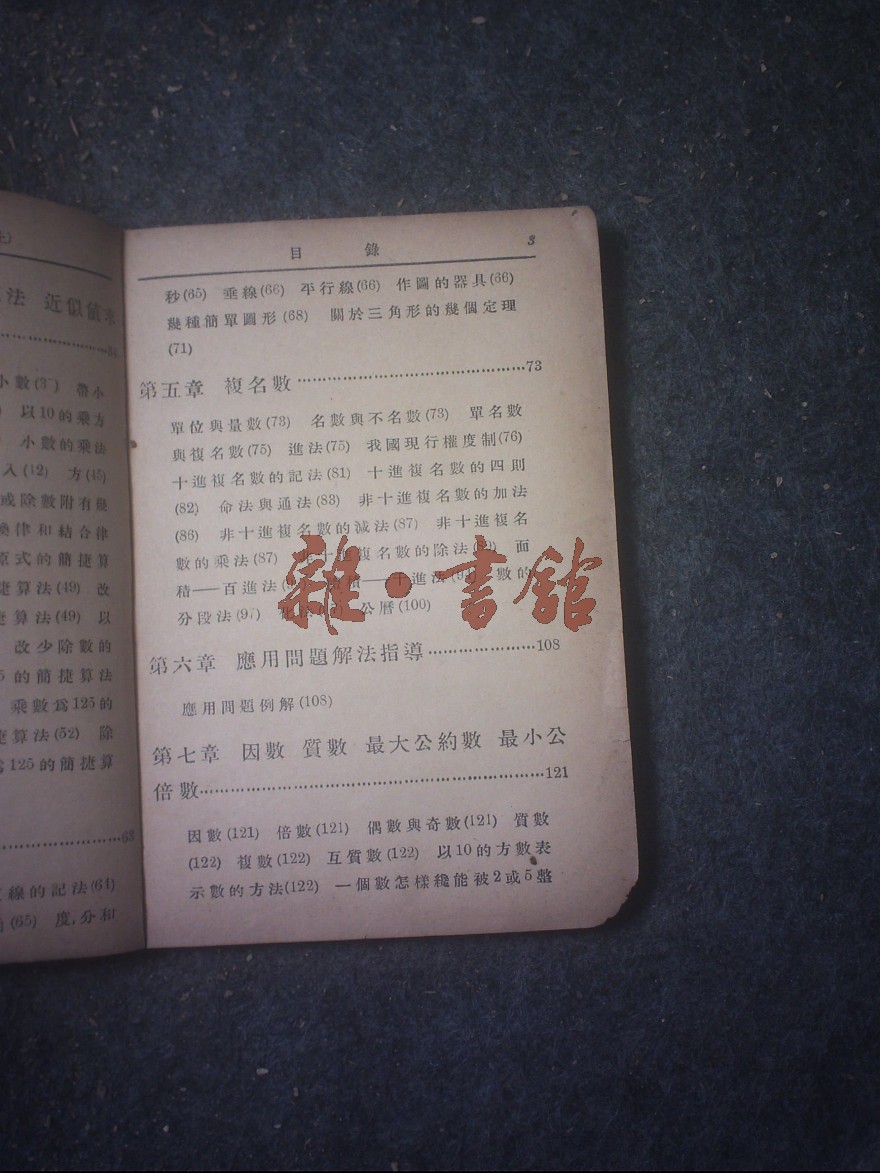 上)
法 近似値求
小數(3 ) 帶小
以10的乘方
小數的乘法
入(42) 方(45)
或除數附有幾
換律和結合律
原式的簡捷算
捷算法(49) 改
捷算法(49) 以
改少除數的
5的簡捷算法
乘數爲125的
捷算法(52) 除
爲125的簡捷算
63
線的記法(64)
(65) 度,分和
目 錄 3
秒(65) 垂線(66) 平行線(66) 作圖的器具(66)
幾種簡單圖形(68) 關於三角形的幾個定理
(71)
第五章 複名數……………………………………73
單位與量數(73) 名數與不名數(73) 單名數
與複名數(75) 進法(75) 我國現行權度制(76)
十進複名數的記法(81) 十進複名數的四則
(82) 命法與通法(83) 非十進複名數的加法
(86) 非十進複名數的減法(87) 非十進複名
數的乘法(87) 十進複名數的除法( 9) 面
積——百進法(9 ——千進法(9 數的
分段法(97) 化法( ) 公曆(100)
雜·書館
第六章 應用問題解法指導…………………108
應用問題例解(108)
第七章 因數 質數 最大公約數 最小公
倍數……………………………………………………121
因數(121) 倍數(121) 偶數與奇數(121) 質數
(122) 複數(122) 互質數(122) 以10的方數表
示數的方法(122) 一個數怎樣纔能被2或5整